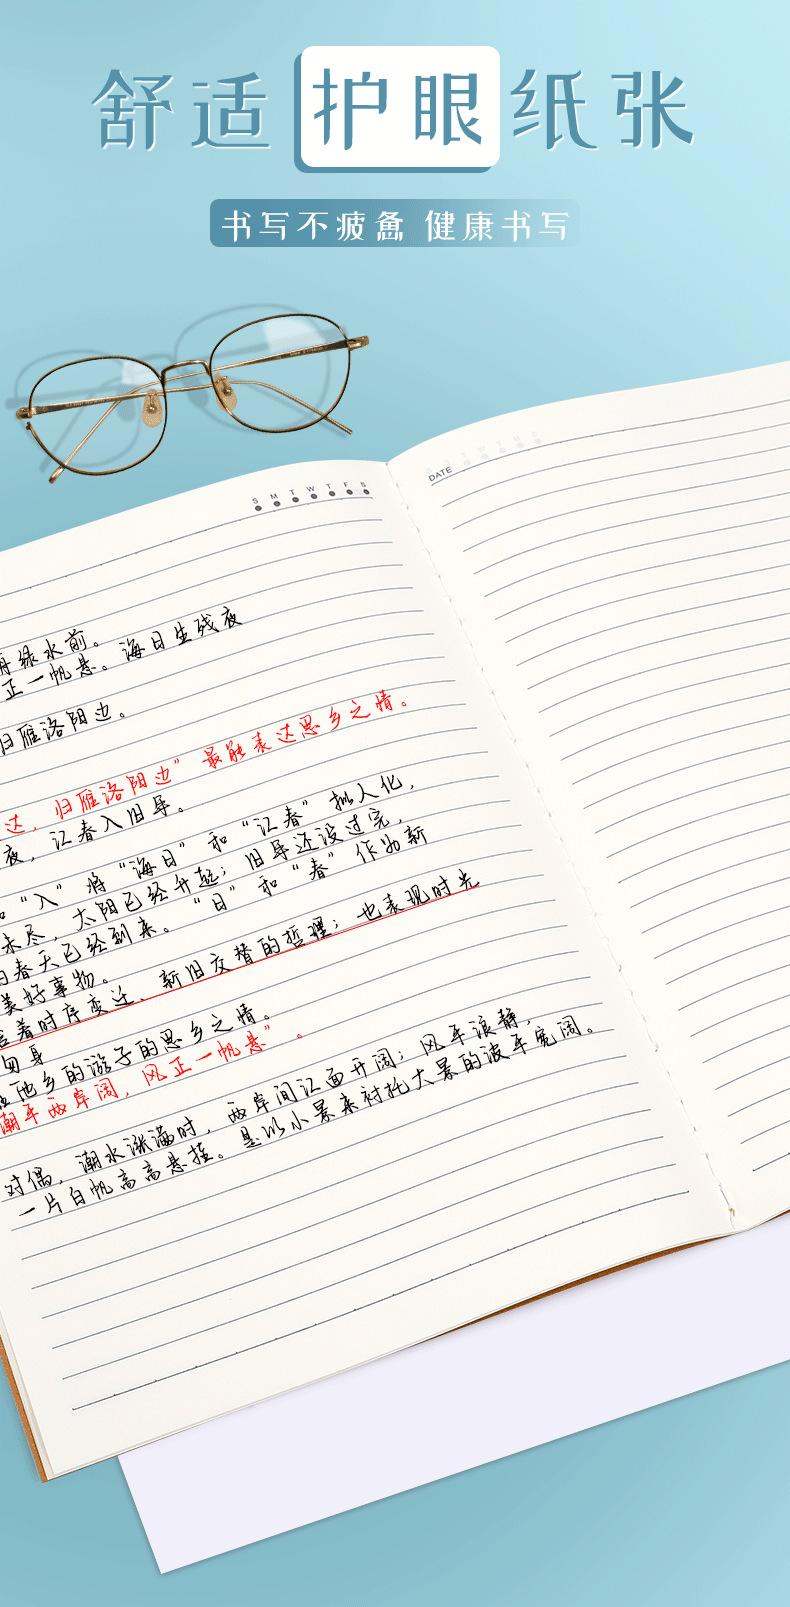 舒适护眼纸张
书写不疲惫 健康书写
S M T W T F S
DATE
S M T W T F S
舟绿水前。
正一帆悬。海日生残夜
归雁洛阳边。
达，归雁洛阳边”最能表达思乡之情。
夜，江春入旧年。
“入”将“海日”和“江春”拟人化，
未尽，太阳已经升起；旧年还没过完，
春天已经到来。“日”和“春”作为新
美好事物。
着时序变迁、新旧交替的哲理；也表现时光
匆身
他乡的游子的思乡之情。
潮平两岸阔，风正一帆悬”。
对偶，潮水涨满时，两岸间江面开阔；风平浪静，
一片白帆高高悬挂。是以小景来衬托大景的波平宽阔。